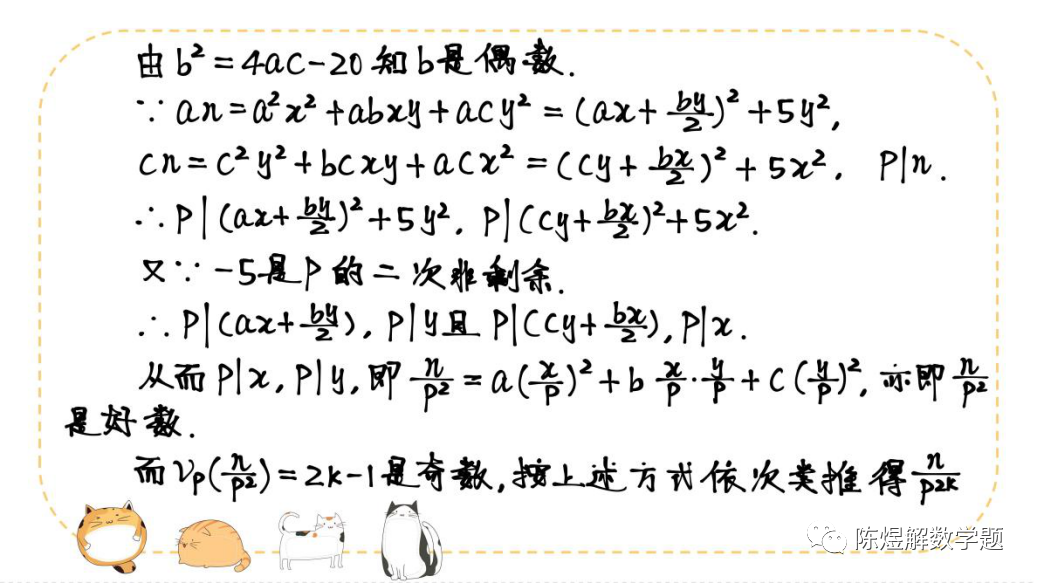 由b²=4ac-20知b是偶数.
∵an=a²x²+abxy+acy²=(ax+\frac{by}{2})²+5y²,
cn=c²y²+bcxy+acx²=(cy+\frac{bx}{2})²+5x². P|n.
∴P|(ax+\frac{by}{2})²+5y². P|(cy+\frac{bx}{2})²+5x².
又∵-5是P的二次非剩余.
∴P|(ax+\frac{by}{2}), P|y且P|(cy+\frac{bx}{2}), P|x.
从而P|x, P|y, 即\frac{n}{P²}=a(\frac{x}{P})²+b\frac{x}{P}·\frac{y}{P}+c(\frac{y}{P})², 亦即\frac{n}{P²}
是好数.
而νp(\frac{n}{P²})=2k-1是奇数,按上述方式依次类推得\frac{n}{P^{2k}}
陈煜解数学题